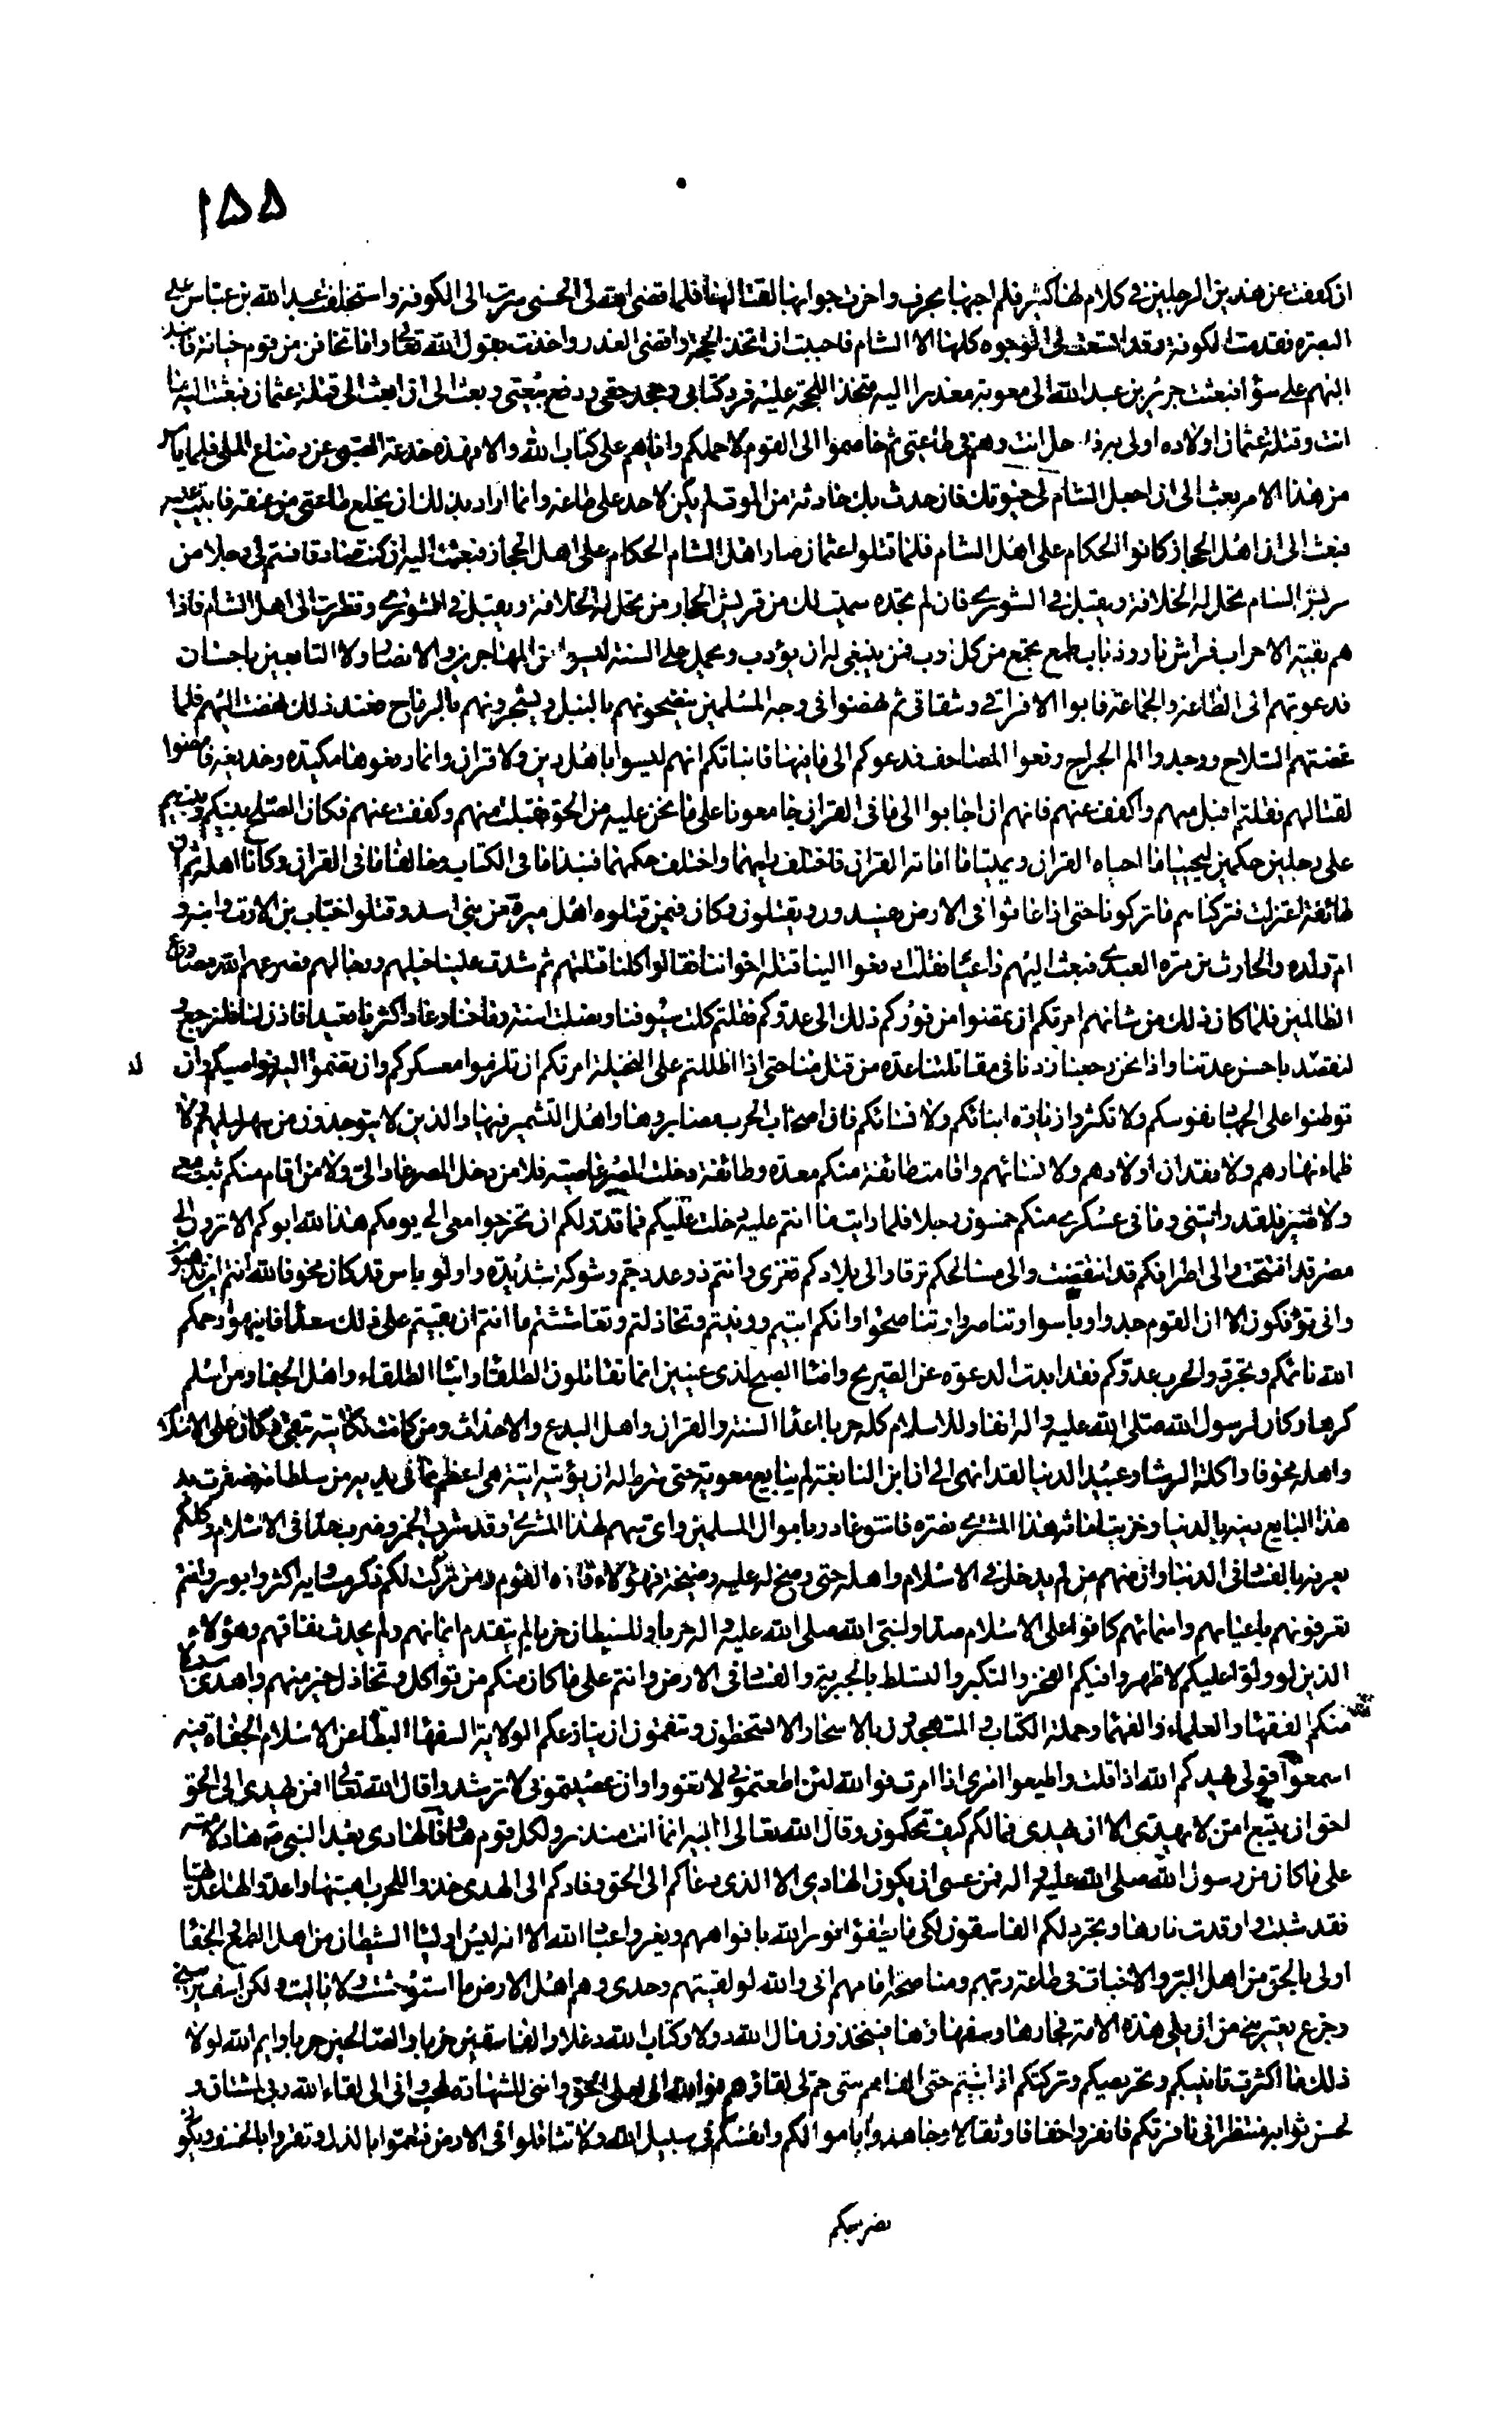 ١٥٥
ان كففت عن هذين الرجلين في كلام لهما كثير فلم اجبهما بحرف واخرت جوابهما لقتالهما فلما قضى الله لى الحسنى سرت الى الكوفة واستخلفت عبد الله بن عباس على
البصرة فقدمت الكوفة وقد اتسعت لى الوجوه كلها الا الشام فاحببت ان اتخذ الحجة واقضى العذر واخذت بقول الله تعالى واما تخافن من قوم خيانة فانبذ
اليهم على سواء فبعثت جرير بن عبد الله الى معوية معذرا اليه متخذا للحجة عليه فرد كتابى وجحد حقى ودفع بيعتى وبعث الى ان ابعث الى قتلة عثمان فبعثت اليه ما
انت وقتلة عثمان اولاده اولى به فادخل انت وهم في طاعتى ثم خاصموا الى القوم لاحملكم واياهم على كتاب الله والا فهذه خدعة الصبى عن رضاع الملى فلما يئس
من هذا الامر بعث الى ان اجعل الشام لى حيوتك فان حدث بك حادثة من الموت لم يكن لاحد على طاعة وانما اراد بذلك ان يخلع طاعتى من عنقه فابيت عليه
فبعث الى ان اهل الحجاز كانوا الحكام على اهل الشام فلما قتلوا عثمان صار اهل الشام الحكام على اهل الحجاز فبعثت اليه ان كنت صادقا فسم لى رجلا من
قريش الشام تحل له الخلافة ويقبل في الشورى فان لم تجده سميت لك من قريش الحجاز من تحل له الخلافة ويقبل في الشورى ونظرت الى اهل الشام فاذا
هم بقية الاحزاب فراش نار وذباب طمع تجمع من كل اوب فمن ينبغى له ان يؤدب ويحمل على السنة ليسوا من المهاجرين والانصار ولا التابعين باحسان
فدعوتهم الى الطاعة والجماعة فابوا الا فراقى وشقاقى ثم نهضوا فى وجه المسلمين ينضحونهم بالنبل ويشجرونهم بالرماح فعند ذلك نهضت اليهم فلما
عضتهم السلاح ووجدوا الم الجراح رفعوا المصاحف فدعوكم الى ما فيها فانبأتكم انهم ليسوا باهل دين ولا قران وانما رفعوها مكيدة وخديعة فامضوا
لقتالهم فقلتم اقبل منهم واكفف عنهم فانهم ان اجابوا الى ما فى القران جامعونا على ما نحن عليه من الحق فقبلت منهم وكففت عنهم فكان الصلح بينكم وبينهم
على رجلين حكمين ليحييا ما احياه القران ويميتا ما اماته القران فاختلف رأيهما واختلف حكمهما فنبذا ما فى الكتاب وخالفا ما فى القران وكانا اهله ثم ان
طائفة اعتزلت فتركناهم ما تركونا حتى اذا عاثوا فى الارض يفسدون ويقتلون وكان فيمن قتلوه اهل ميرة من بنى اسد وقتلوا خباب بن الارت وابنه و
ام ولده والحارث بن مرة العبدى فبعثت اليهم داعيا فقلت ادفعوا الينا قتلة اخواننا فقالوا كلنا قتلتهم ثم شدت علينا خيلهم ورجالهم فصرعهم الله مصارع
الظالمين فلما كان ذلك من شانهم امرتكم ان تمضوا من فوركم ذلك الى عدوكم فقلتم كلت سيوفنا ونصلت اسنة رماحنا وعاد اكثرها قصيدا فاذن لنا فلنرجع و
لنقصد باحسن عدتنا واذا نحن رجعنا زدنا فى مقاتلتنا عدة من قتل منا حتى اذا اظللتم على النخيلة امرتكم ان تلزموا معسكركم وان تضموا اليه نواصيكم وان
توطنوا على الجهاد نفوسكم ولا تكثروا زيارة ابنائكم ولا نسائكم فان اصحاب الحرب مصابروها واهل التشمير فيها والذين لا يتوجدون من سهر ليلهم ولا
ظماء نهارهم ولا فقدان اولادهم ولا نسائهم واقامت طائفة منكم معدة وطائفة دخلت المصر عاصية فلا من دخل المصر عاد الى ولا من اقام منكم ثبت معى
ولا صبر فلقد رايتنى وما فى عسكرى منكم خمسون رجلا فلما رايت ما انتم عليه دخلت عليكم فما قدر لكم ان تخرجوا معى الى يومكم هذا لله ابوكم الا ترون الى
مصر قد افتتحت والى اطرافكم قد انتقصت والى مسالحكم ترقا والى بلادكم تغزى وانتم ذو عدد جم وشوكة شديدة واولو باس قد كان مخوفا لله انتم اين تذهبون
وانى تؤفكون الا ان القوم جدوا وباسوا وتناصروا وتناصحوا وانكم ابيتم وونيتم وتخاذلتم وتغاششتم ما انتم ان بقيتم على ذلك سعدا فانبهوا رحمكم
الله نائمكم وتجردوا لحرب عدوكم فقد ابدت الدعوة عن الصريح واضاء الصبح لذى عينين انما تقاتلون الطلقاء وابناء الطلقاء واهل الجفاء ومن اسلم
كرها وكان لرسول الله صلى الله عليه واله انفا وللاسلام كله حربا اعداء السنة والقران واهل البدع والاحداث ومن كانت نكايته تتقى وكان على الاسلام
واهله مخوفا واكلة الرشا وعبيد الدنيا لقد انهى الى ان ابن النابغة لم يبايع معوية حتى شرط له ان يؤتيه اتية هى اعظم مما فى يديه من سلطانه فصفرت يد
هذا البايع دينه بالدنيا وخزيت امانة هذا المشترى بنصرة فاسق غادر باموال المسلمين واى سهم لهذا المشترى وقد شرب الخمر وضرب حدا فى الاسلام وكلكم
يعرفه بالفساد فى الدنيا وان منهم من لم يدخل فى الاسلام واهله حتى رضخ له عليه رضيخة فهؤلاء قادة القوم ومن تركت لكم ذكر مساويه اكثر وابور وانتم
تعرفونهم باعيانهم واسمائهم كانوا على الاسلام ضدا ولنبى الله صلى الله عليه واله حربا وللشيطان حزبا لم يتقدم ايمانهم ولم يحدث نفاقهم وهؤلاء
الذين لو ولوا عليكم لاظهروا فيكم الفخر والتكبر والتسلط بالجبرية والفساد فى الارض وانتم على ما كان منكم من تواكل وتخاذل خير منهم واهدى سبيلا
منكم الفقهاء والعلماء والفهماء وحملة الكتاب والمتهجدون بالاسحار الا تسخطون وتنقمون ان ينازعكم الولاية السفهاء البطاء عن الاسلام الجفاة فيه
اسمعوا قولى يهدكم الله اذا قلت واطيعوا امرى اذا امرت فوالله لئن اطعتمونى لا تغووا وان عصيتمونى لا ترشدوا قال الله تعالى افمن يهدى الى الحق
احق ان يتبع امن لا يهدى الا ان يهدى فمالكم كيف تحكمون وقال الله تعالى لنبيه انما انت منذر ولكل قوم هاد فالهادى بعد النبى هاد لامته
على ما كان من رسول الله صلى الله عليه واله فمن عسى ان يكون الهادى الا الذى دعاكم الى الحق وقادكم الى الهدى خذوا للحرب اهبتها واعدوا لها عدتها
فقد شبت واوقدت نارها وتجرد لكم الفاسقون لكى ما يطفؤا نور الله بافواههم ويغروا عباد الله الا انه ليس اولياء الشيطان من اهل الطمع والجفاء
اولى بالحق من اهل البر والاخبات فى طاعة ربهم ومناصحة امامهم انى والله لو لقيتهم وحدى وهم اهل الارض ما استوحشت ولا باليت ولكن اسف يريبنى
وجزع يعترينى من ان يلى هذه الامة فجارها وسفهاؤها فيتخذون مال الله دولا وكتاب الله دغلا والفاسقين حزبا والصالحين حربا وايم الله لولا
ذلك ما اكثرت تانيبكم وتحريصكم وتركتكم اذا ابيتم حتى القاهم متى حم لى لقاؤهم فوالله انى لعلى الحق وانى للشهادة لمحب وانى الى لقاء الله ربى لمشتاق و
لحسن ثوابه منتظر انى نافرتكم فانفروا خفافا وثقالا وجاهدوا باموالكم وانفسكم في سبيل الله ولا تثاقلوا فى الارض فتعموا بالذل وتقروا بالخسف ويكون
نصيبكم